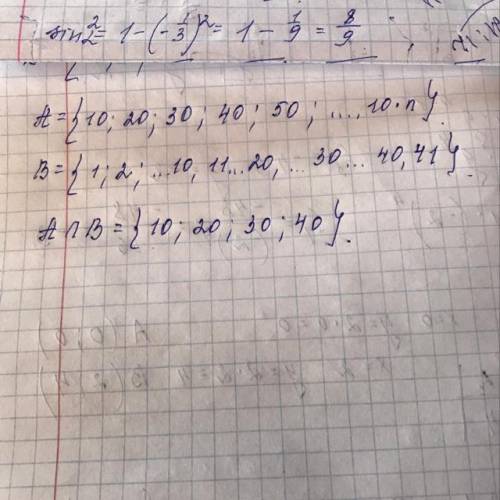 sin²2 = 1 - (-1/3)² = 1 - 1/9 = 8/9
A = {10; 20; 30; 40; 50; ...., 10·n}.
B = {1; 2; ...10, 11...20, ... 30... 40, 41}.
A ∩ B = {10; 20; 30; 40}.